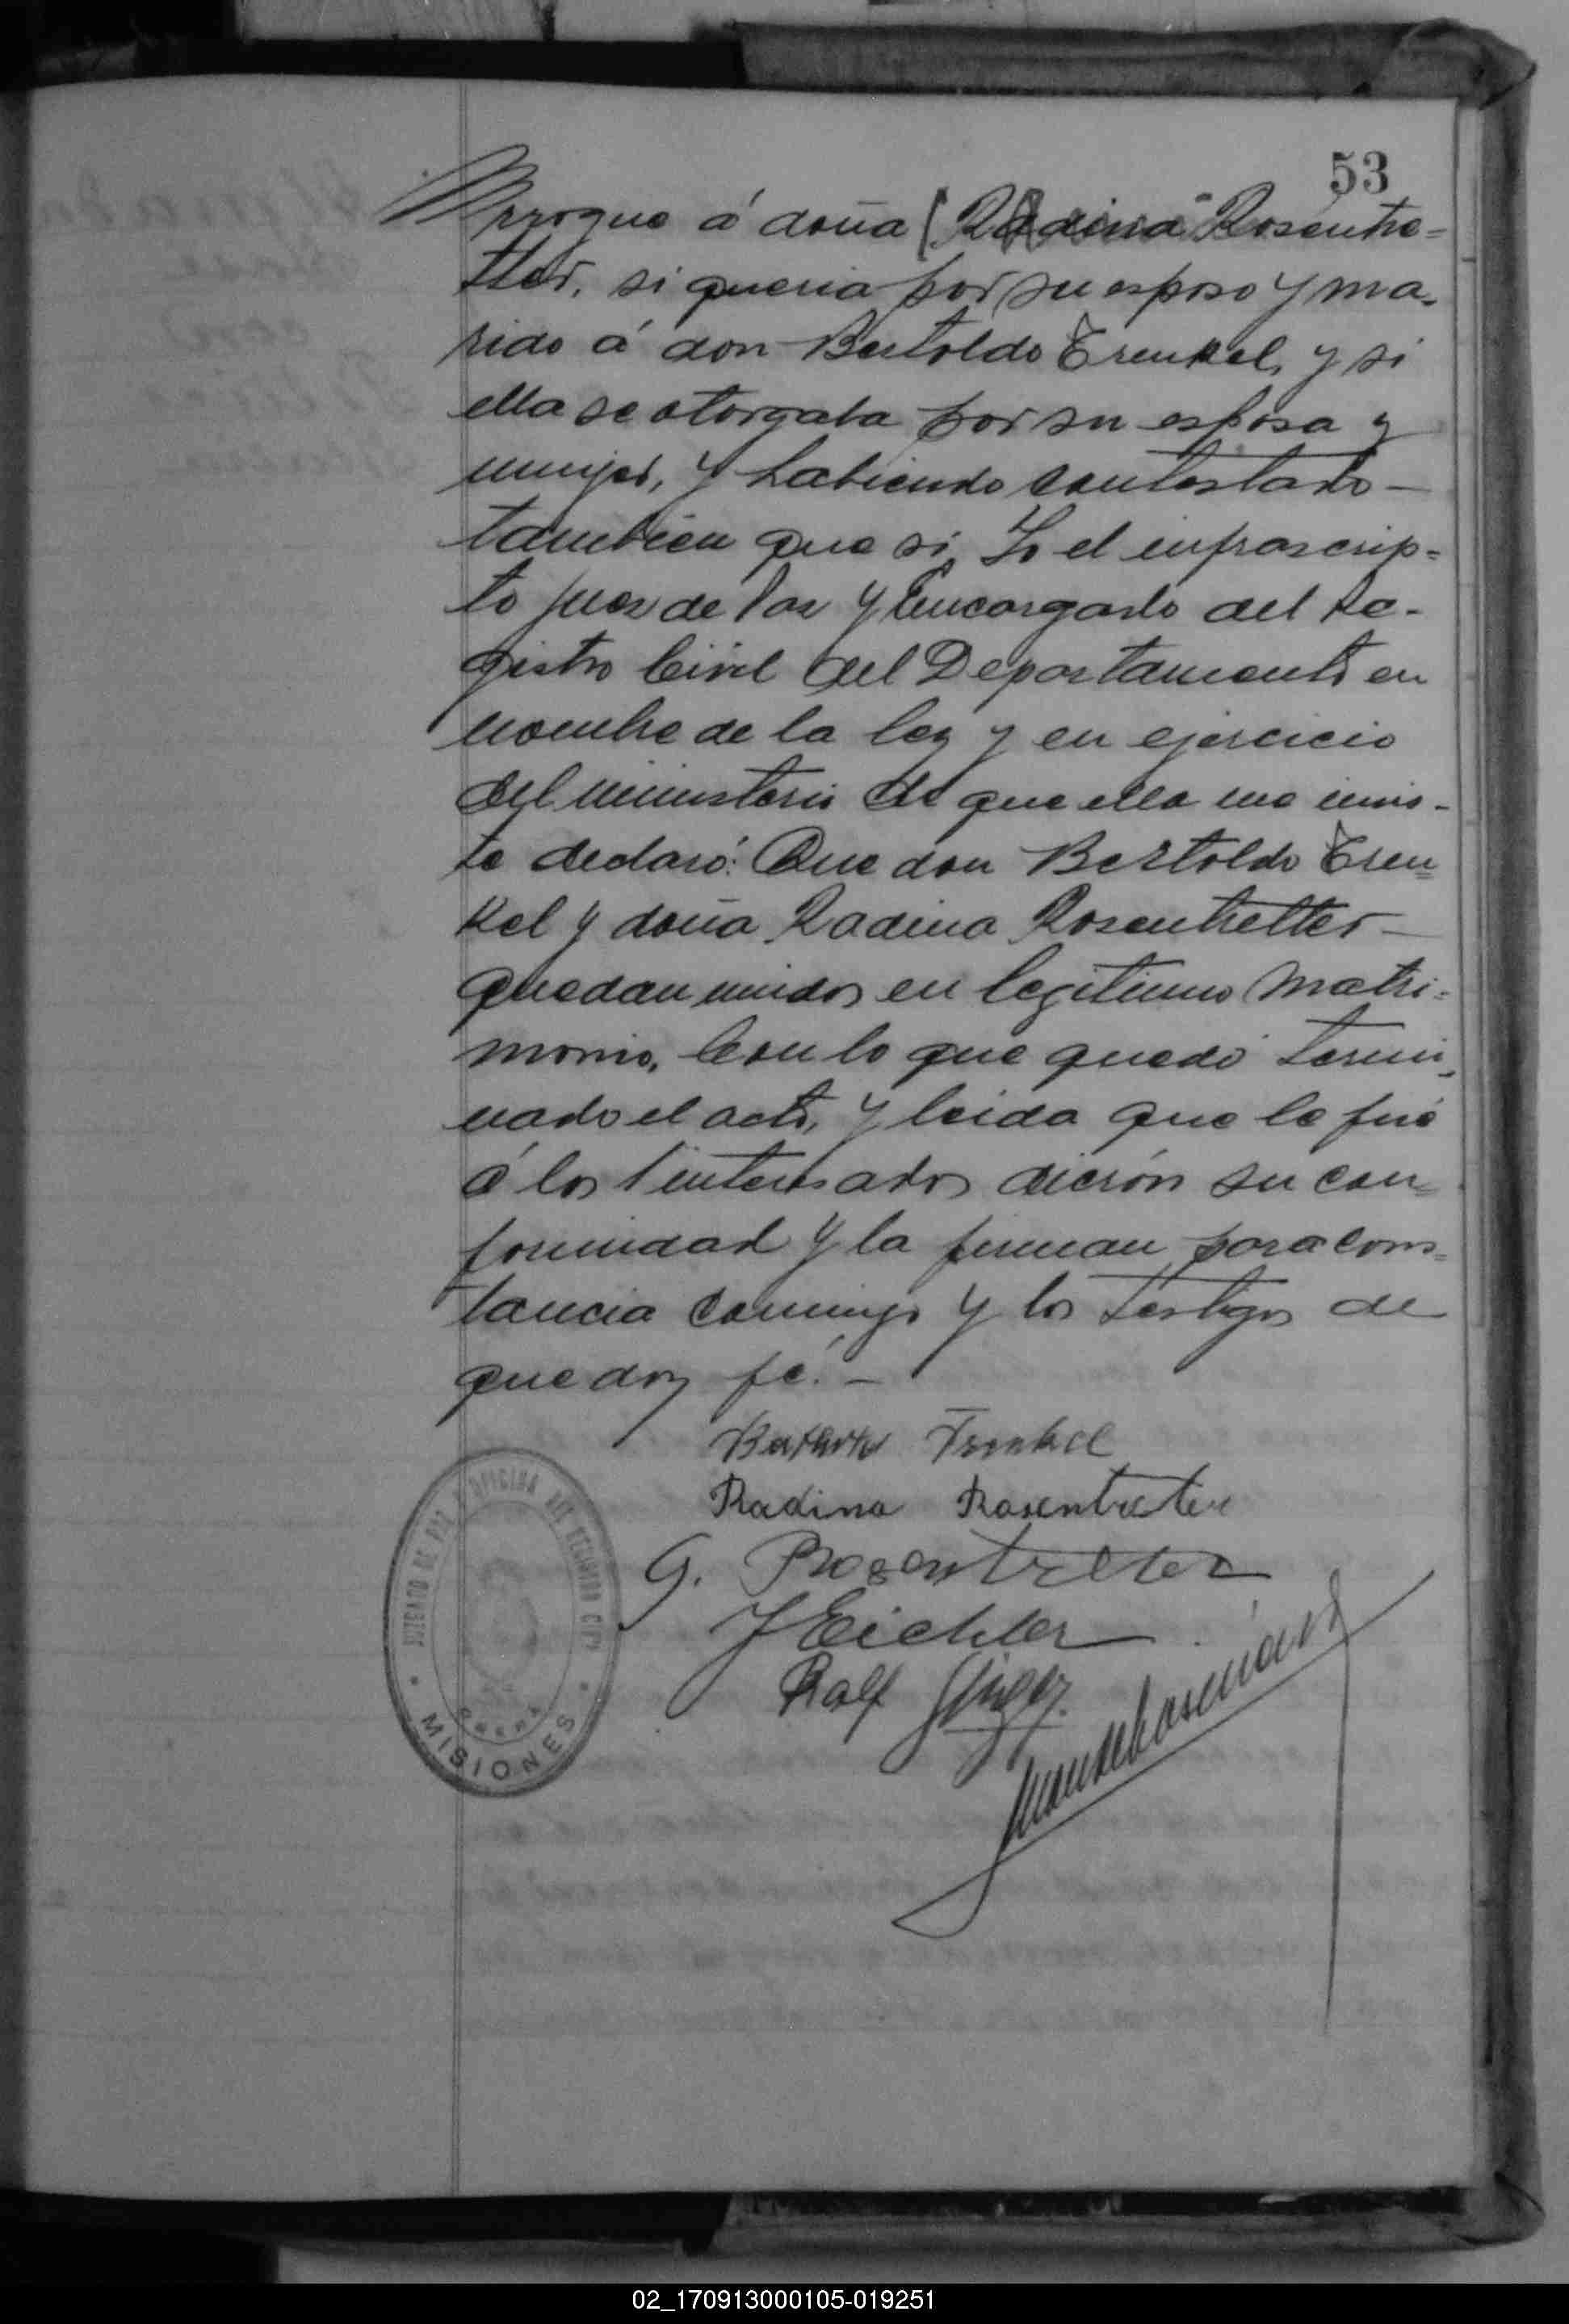 53
rrogue á doña Radina Rosentre=
tter, si queria por su esposo y ma-
rido á don Bertoldo Frenkel, y si
ella se otorgaba por su esposa y
mujer, y habiendo contestado —
tambien que si, Yo el infrascrip=
to Juez de Paz y Encargado del Re-
gistro Civil del Departamento en
nombre de la ley y en ejercicio
del ministerio de que ella me invis-
te declaró: Que don Bertoldo Fren=
kel y doña Radina Rosentretter —
quedan unidos en legitimo matri=
monio, Con lo que quedó termi-
nado el acto, y leida que le fué
á los interesados dierón su con=
formidad y la firman para cons=
tancia conmigo y los testigos de
que doy fé. —
Berthold Frenkel
Radina Rosentreter
G. Rosentreter
J Eichler
Ralf
JUZGADO DE PAZ Y OFICINA DEL REGISTRO CIVIL
MISIONES
02_170913000105-019251